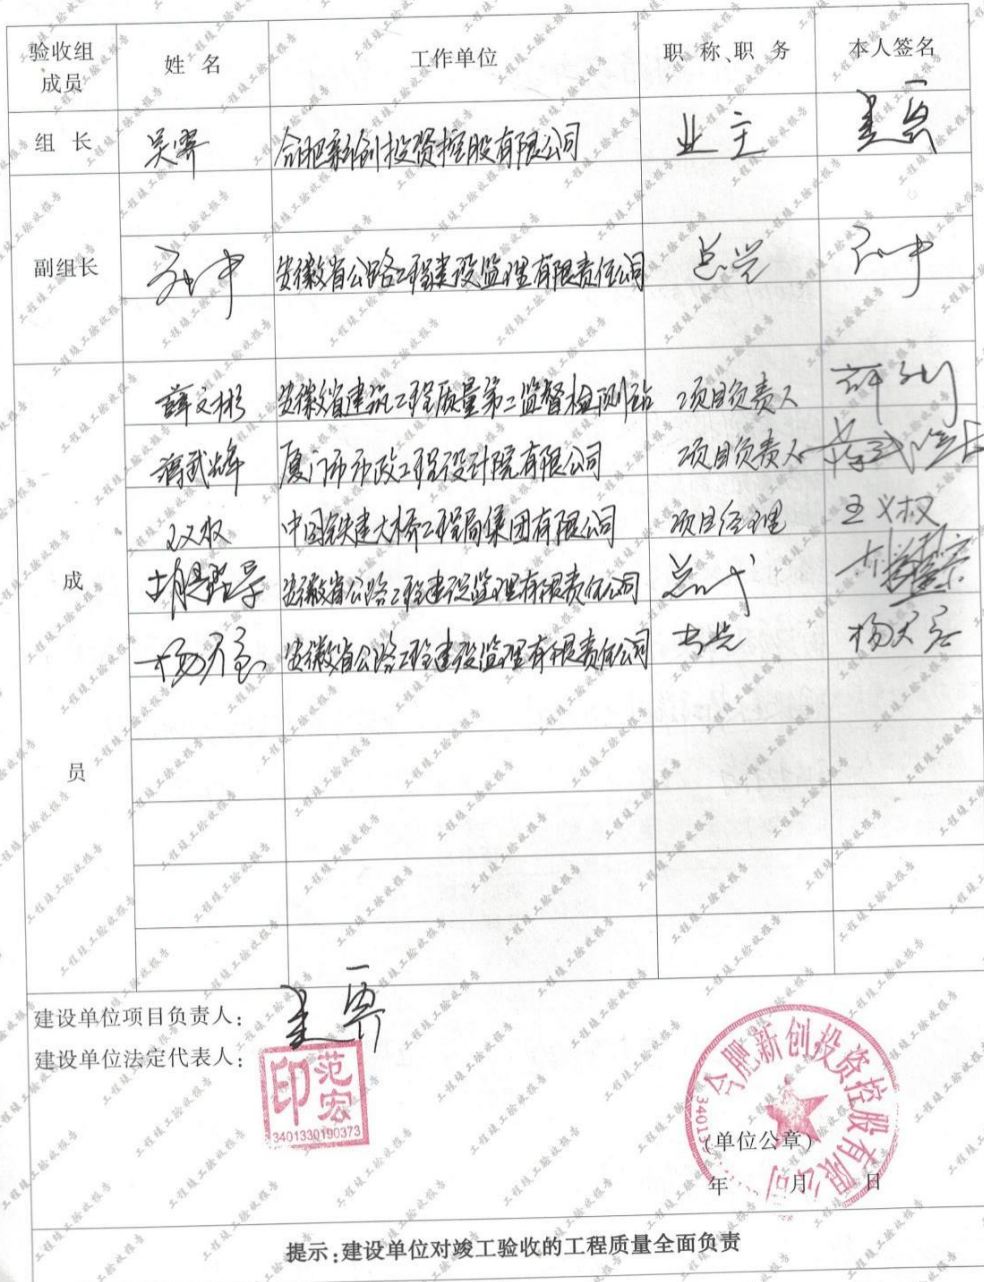 验收组成员 姓名 工作单位 职称、职务 本人签名
组长 吴霁 合肥新创投资控股有限公司 业主
副组长 安徽省公路工程建设监理有限责任公司 总监
薛文彬 安徽省建筑工程质量第二监督检测站 项目负责人
蒋武辉 厦门市市政工程设计院有限公司 项目负责人
王义权 中国铁建大桥工程局集团有限公司 项目经理 王义权
成 安徽省公路工程建设监理有限责任公司 总代
安徽省公路工程建设监理有限责任公司 专监
员
建设单位项目负责人：
建设单位法定代表人：
范宏印
3401330190373
合肥新创投资控股有限公司
（单位公章）
年 月 日
提示：建设单位对竣工验收的工程质量全面负责
工程竣工验收报告